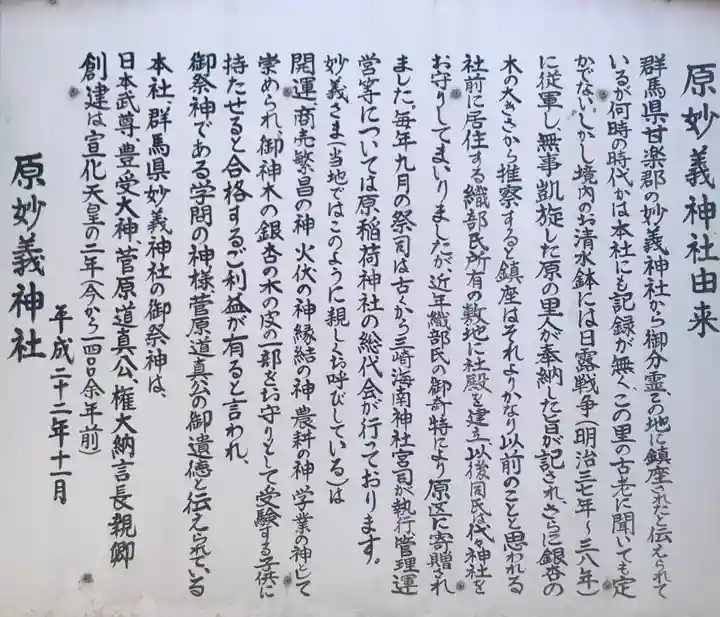 原妙義神社由来
群馬県甘楽郡の妙義神社から御分霊この地に鎮座されたと伝えられて
いるが何時の時代かは本社にも記録が無く、この里の古老に聞いても定
かでない。しかし境内のお清水鉢には日露戦争(明治三七年~三八年)
に従軍し、無事凱旋した原の里人が奉納した旨が記され、さらに銀杏の
木の大きさから推察すると鎮座はそれよりかなり以前のことと思われる
社前に居住する織部氏所有の敷地に社殿を建立以後同氏は代々神社を
お守りしてまいりましたが、近年織部氏の御奇特により原区に寄贈され
ました。毎年九月の祭司は古くから三崎海南神社宮司が執行管理運
営等については原稲荷神社の総代会が行っております。
妙義さま(当地ではこのように親しくお呼びしている)は
開運、商売繁昌の神 火伏の神 縁結の神 農耕の神 学業の神として
崇められ、御神木の銀杏の木の皮の一部をお守りとして受験する子供に
持たせると合格するご利益が有ると言われ、
御祭神である学問の神様菅原道真公の御遺徳と伝えられている
本社、群馬県妙義神社の御祭神は、
日本武尊、豊受大神、菅原道真公、権大納言長親卿
創建は宣化天皇の二年(今から一四〇〇余年前)
平成二十二年十一月
原妙義神社